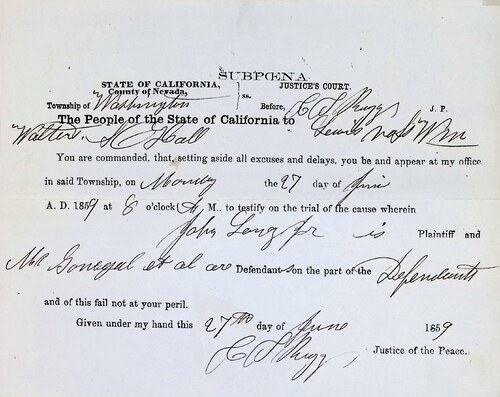 SUBPŒNA
STATE OF CALIFORNIA,
County of Nevada,
ss.
JUSTICE'S COURT.
Township of Washington Before, J. P.
The People of the State of California to Lewis Wm
Walters Hall
You are commanded, that, setting aside all excuses and delays, you be and appear at my office
in said Township, on Monday the 27 day of June
A. D. 1859 at 8 o'clock A. M., to testify on the trial of the cause wherein
John Long Jr is Plaintiff and
et al are Defendant on the part of the Defendants
and of this fail not at your peril.
Given under my hand this 27th day of June 1859
Justice of the Peace.